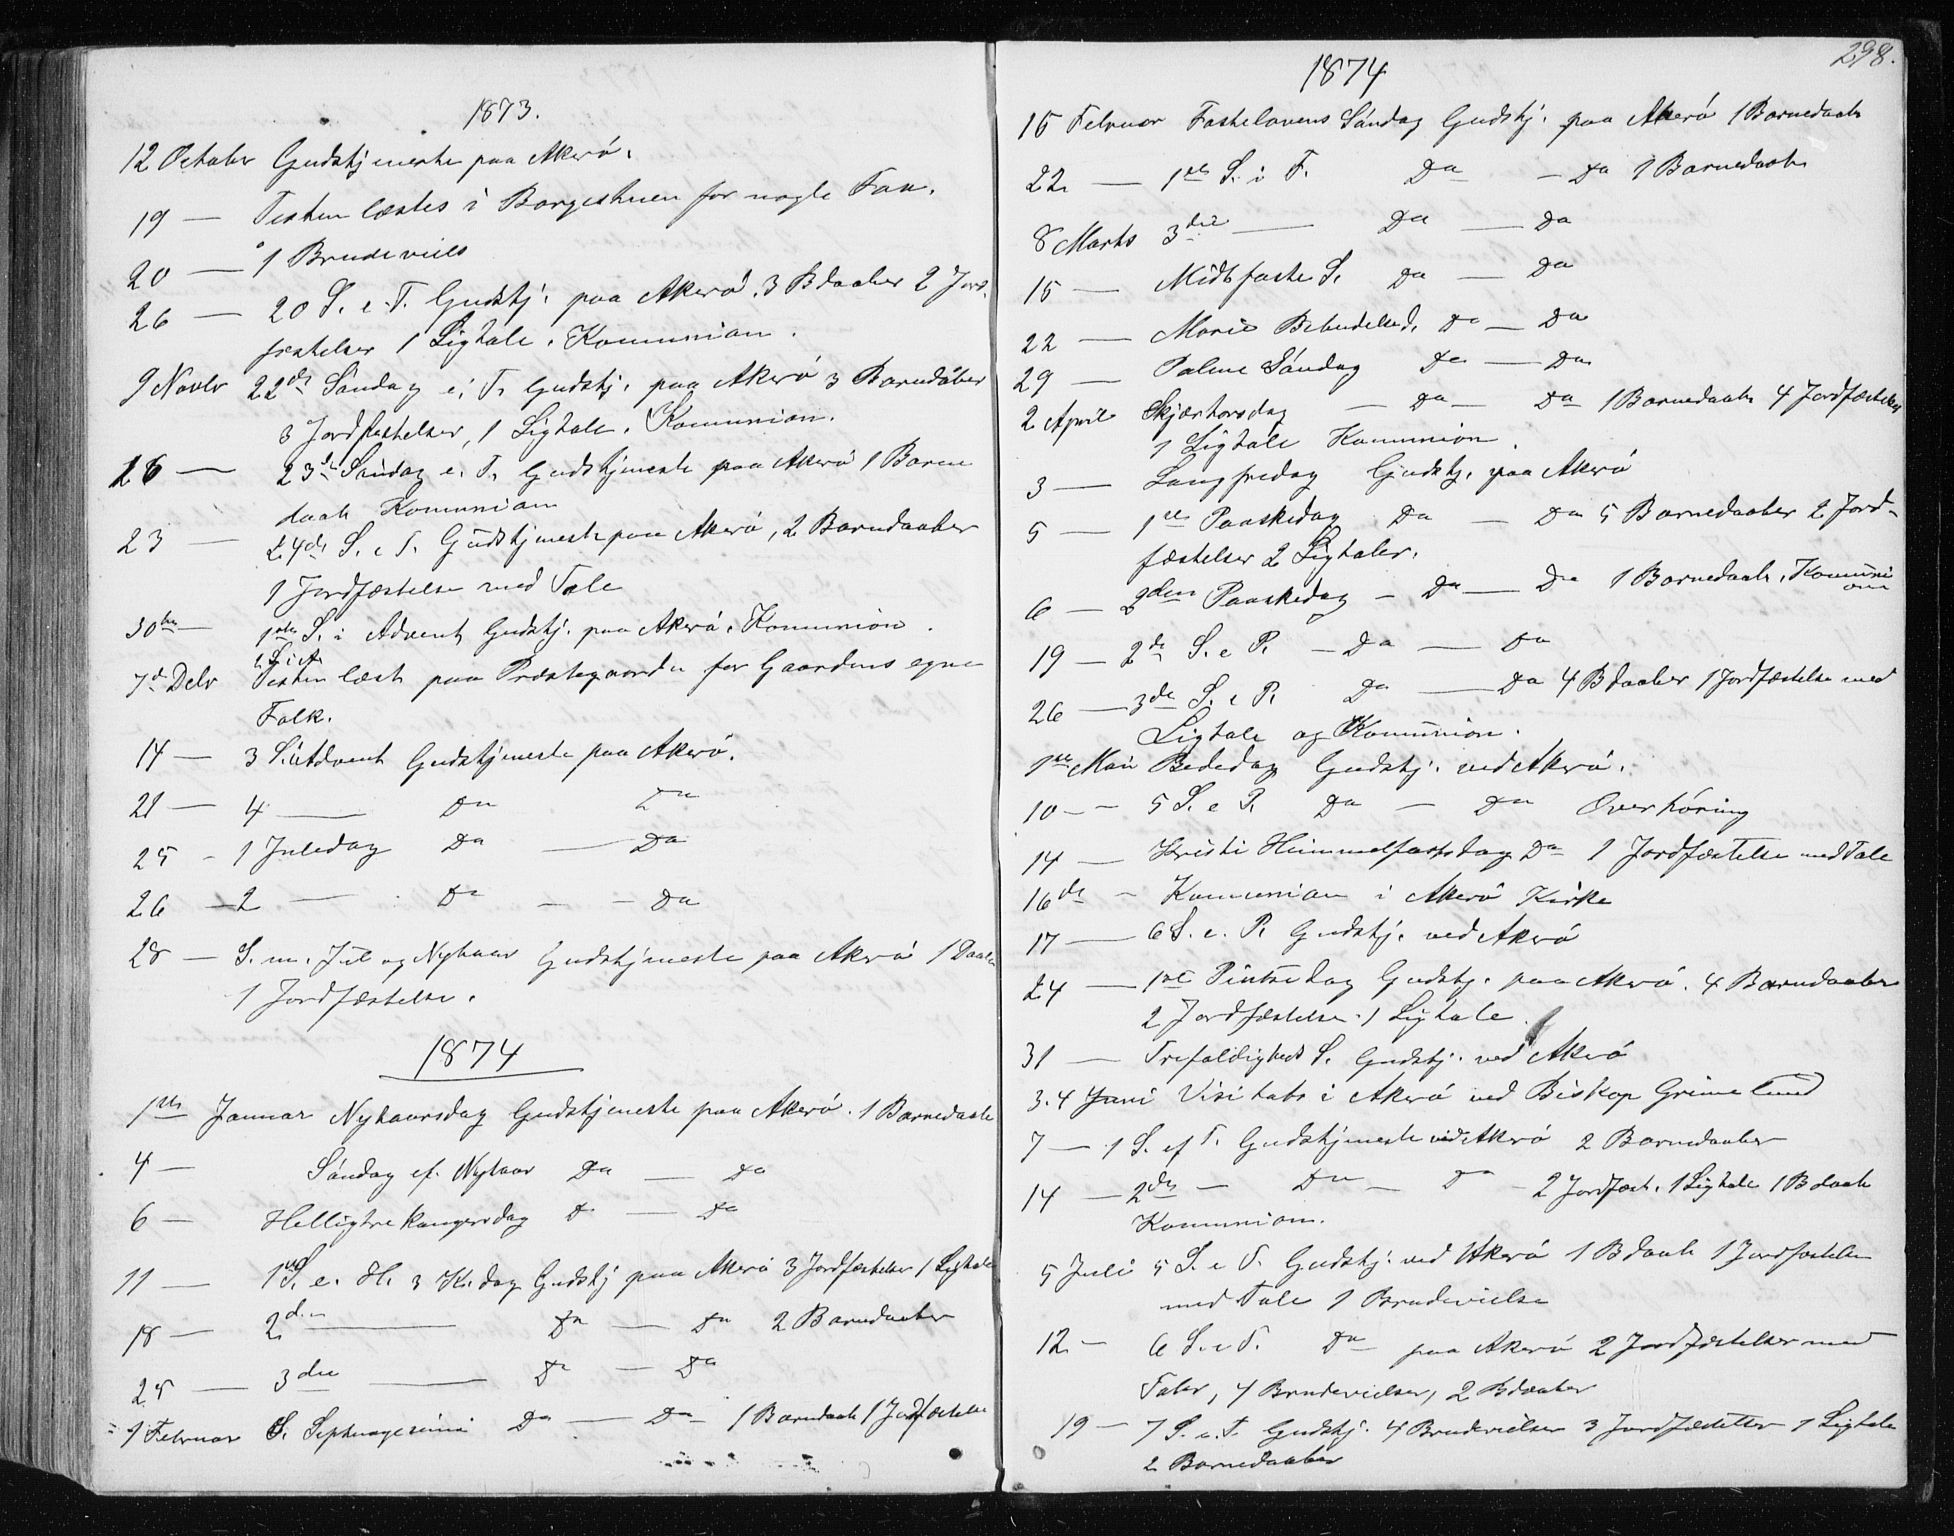 1873.
12 October Gudstjeneste paa Akerö.
19 — Texten læstes i Borgestuen for nogle Faa.
20 — 1 Brudevielse
26 — 20 S. e. T. Gudstj. paa Akerö. 3 Bdaaber 2 Jord-
fæstelser 1 Ligtale. Kommunion.
9 Novbr 22de Söndag e. T. Gudstj. paa Akerö 3 Barnedåber
3 Jordfæstelser, 1 Ligtale. Kommunion.
16 — 23de Söndag e. T. Gudstjeneste paa Akerö 1 Barne
daab Kommunion
23 — 24de S. e T. Gudstjeneste paa Akerö, 2 Barnedaaber
1 Jordfæstelse med Tale
30te — 1ste S. i Advent Gudstj. paa Akerö. Kommunion.
2 S. i A.
7de Debr Texten læst paa Præstegaarden for Gaardens egne
Folk.
14 — 3 S. i Advent Gudstjeneste paa Akerö.
21 — 4 — Do Do
25 - 1 Juledag Do — Do
26 — 2 — Do — - Do
28 — S. m. Jul og Nytaar Gudstjeneste paa Akerö 1 Daab
1 Jordfæstelse.
1874
1ste Januar Nytaarsdag Gudstjeneste paa Akerö. 1 Barnedaab
4 — Söndag ef. Nytaar Do — Do
6 — Helligtrekongersdag Do — Do
11 — 1ste S. e. H. 3 K. dag Gudstj paa Akerö 3 Jordfæstelser 1 Ligtale
18 — 2den — Do — Do 2 Barnedaaber
25 — 3die — Do — Do
1 Februar S. Septuagesima Do — Do 1 Barnedaab 1 Jordfæstelse
298.
1874
15 Februar Fastelavens Söndag Gudstj. paa Akerö 1 Barnedaab
22 — 1ste S. i F. Do — Do 1 Barnedaab
8 Marts 3die — Do — Do
15 — Midtfaste S. Do — Do
22 — Marie Bebudelsed. Do — Do
29 — Palme Söndag Do — Do
2 April Skjærtorsdag — Do — Do 1 Barnedaab 4 Jordfæstelser
1 Ligtale Kommunion.
3 — Langfredag Gudstj. paa Akerö
5 — 1ste Paaskedag Do — Do 5 Barnedaaber 2 Jord-
fæstelser 2 Ligtaler.
6 — 2den Paaskedag - Do — Do 1 Barnedaab. Komuni
on
19 — 2de S. e P. - Do — Do
26 — 3de S. e P. Do — Do 4 Bdaaber 1 Jordfæstelse med
Ligtale og Komunion.
1ste Mai Bededag Gudstj. ved Akerö.
10 - - 5 S. e P. Do — Do Overhöring
14 — Kristi Himmelfartsdag Do 1 Jordfæstelse med Tale
16de - Kommunion i Akerö Kirke
17 — 6 S. e. P. Gudstj. ved Akerö
24 — 1ste Pintsedag Gudstj. paa Akerö. 4 Barnedaaber
2 Jordfæstelse. 1 Ligtale.
31 — Trefoldigheds S. Gudstj. ved Akerö
3.4 Juni Visitats i Akerö ved Biskop Grimelund
7 — 1 S. ef T. Gudstjeneste ved Akerö 2 Barnedaaber
14 — 2den — Do — Do - 2 Jordfæst. 1 Ligtale 1 Bdaab
Kommunion.
5 Juli 5 S. e T. Gudstj. ved Akerö 1 Bdaab 1 Jordfæstelse
med Tale 1 Brudevielse
12 - 6 S. e T. Do paa Akerö 2 Jordfæstelser med
Taler, 4 Brudevielser, 2 Bdaaber
19 — 7 S. e. T. Gudstj. 4 Brudevielser 3 Jordfæstelser 1 Ligtale
2 Barnedaaber